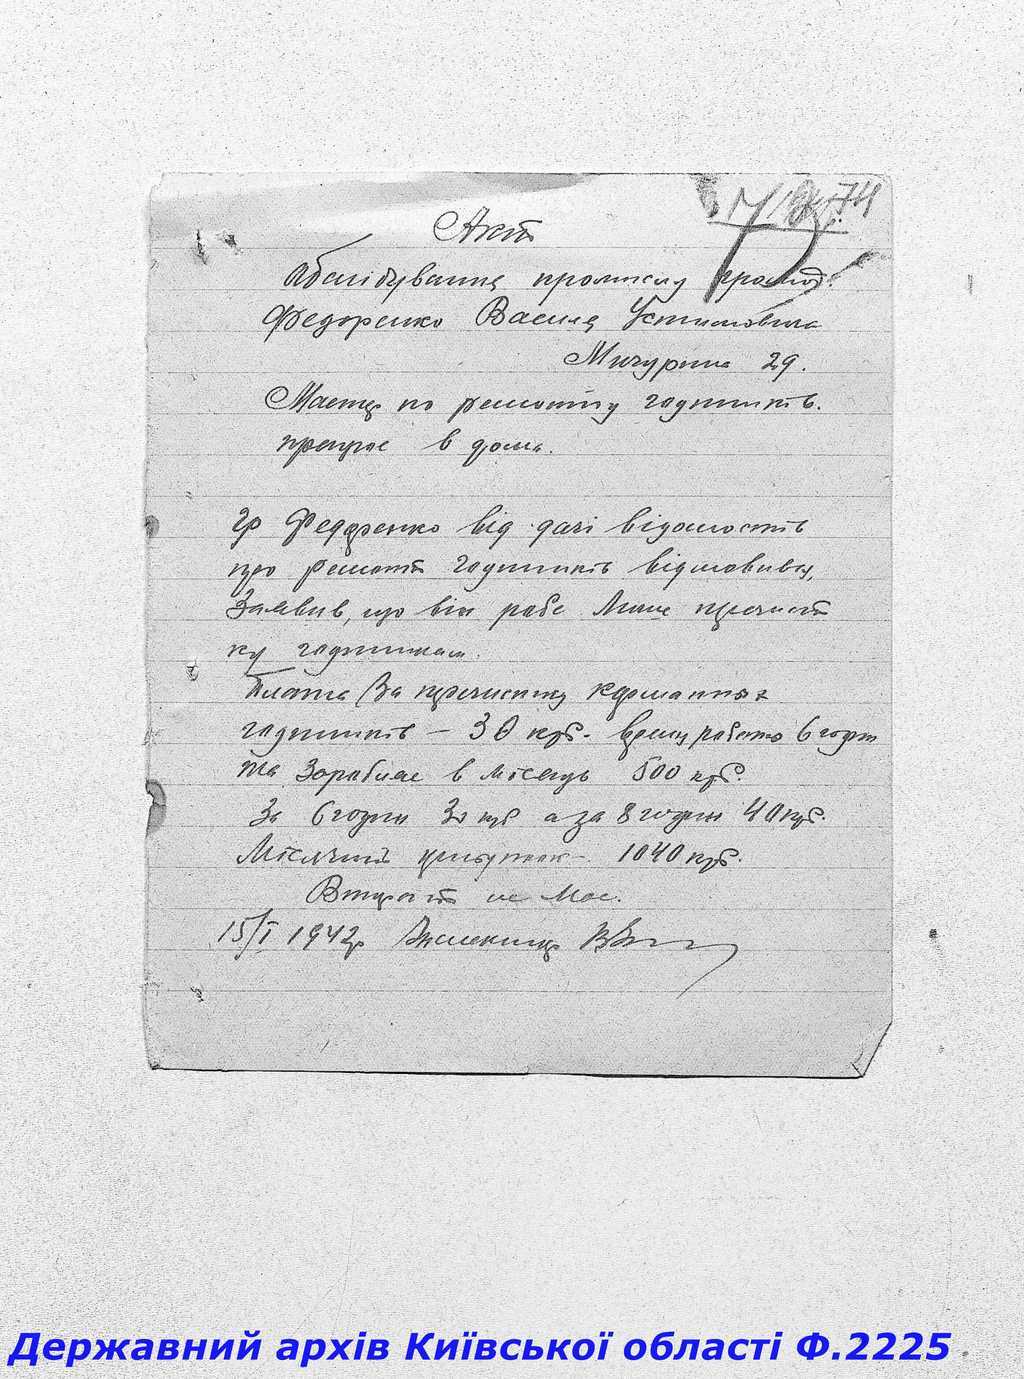 74
Акт
Абслідування промислу громад.
Федоренко Василя Устимовича
Мичурина 29.
Мастер по ремонту годинників.
працює в дома.
Гр Федоренко від дачі відомостів
про ремонт годинників відмовився,
Заявив, що він робе Лише прочист
ку годинникам.
Плата За прочистку карманних
годинників – 30 крб. время работы 6 годин
та Зоработає в місяць 500 крб.
За 6 годин 30 крб а за 8 годин 40 крб.
Місячний прибуток – 1040 крб.
Втрат не Має.
15/I 1942р Інспектор
Державний архів Київської області Ф.2225